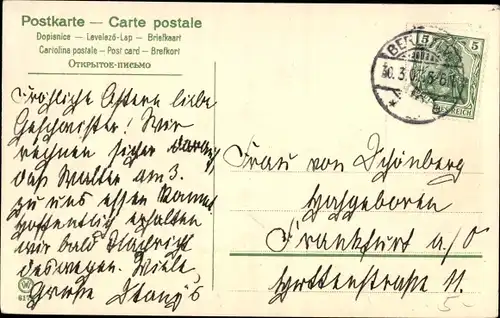 Postkarte — Carte postale
Dopisnice — Levelező-Lap — Briefkaart
Cartolina postale — Post card — Brefkort
Открытое-письмо
BERLIN
30.3.0
5 5
REICH
Fröhliche Ostern liebe
Geschwister! Wir
rechnen sicher darauf
daß Walter am 3.
zu uns essen kommt
hoffentlich erhalten
wir bald Nachricht
deswegen. Viele
Grüße
Frau von Schönberg
Hochgeboren
Frankfurt a/O
Huttenstraße 11.
5.-